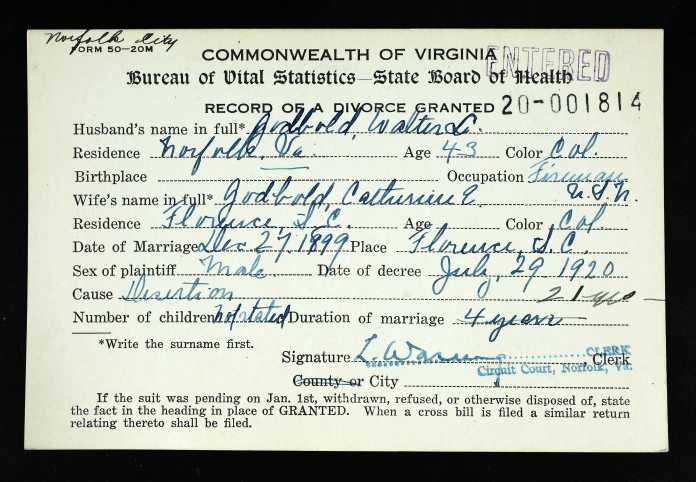 Norfolk City
FORM 50—20M
COMMONWEALTH OF VIRGINIA
ENTERED
Bureau of Vital Statistics—State Board of Health
RECORD OF A DIVORCE GRANTED 20-001814
Husband's name in full* Godbold, Walter L.
Residence Norfolk, Va Age 43 Color Col.
Birthplace Occupation Fireman
U.S.N.
Wife's name in full* Godbold, Catherine E.
Residence Florence, S.C. Age Color Col
Date of Marriage Dec 27, 1899 Place Florence, S.C.
Sex of plaintiff Male Date of decree July, 29 1920
Cause Desertion 21
Number of children not stated Duration of marriage 4 years
*Write the surname first.
Signature L. Waring CLERK Clerk
Circuit Court, Norfolk, Va.
County or City
If the suit was pending on Jan. 1st, withdrawn, refused, or otherwise disposed of, state
the fact in the heading in place of GRANTED. When a cross bill is filed a similar return
relating thereto shall be filed.